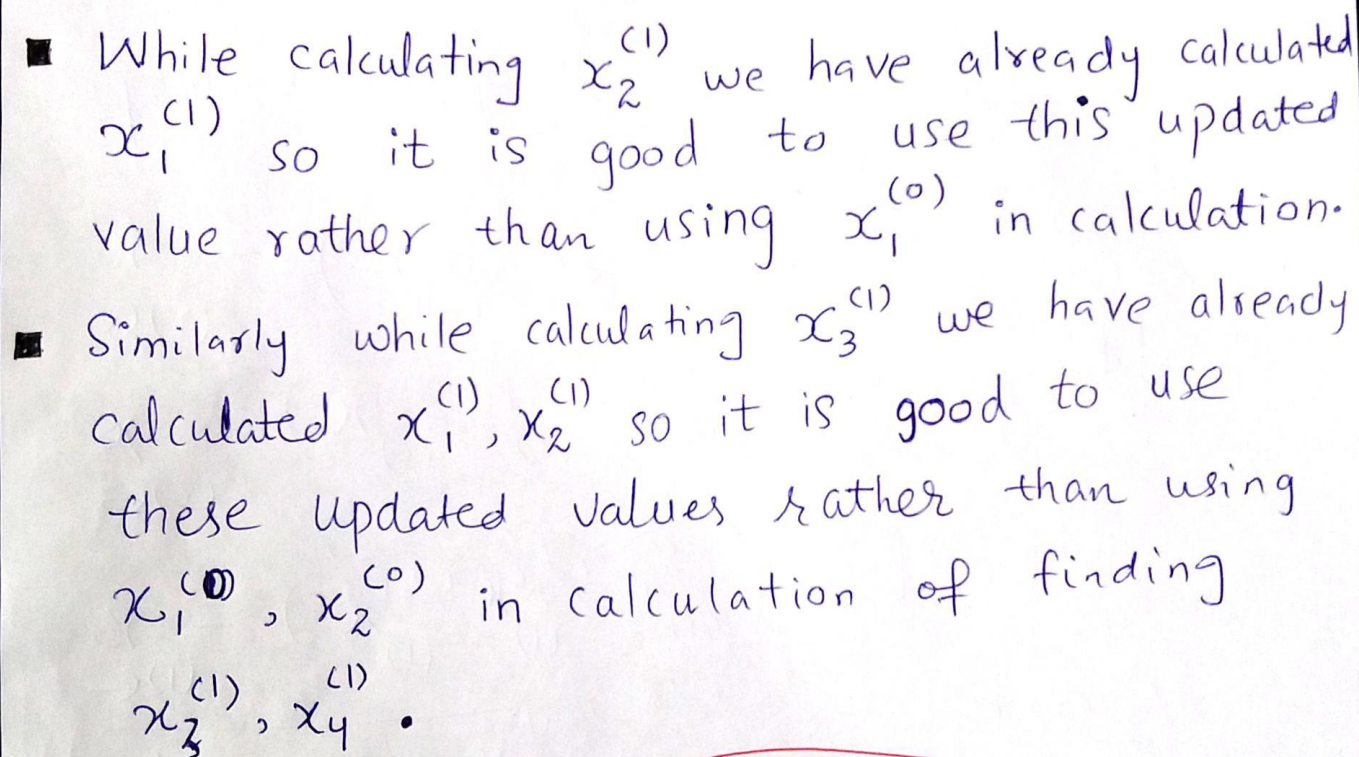 ■ While calculating x₂⁽¹⁾ we have already calculated
x₁⁽¹⁾ so it is good to use this updated
value rather than using x₁⁽⁰⁾ in calculation.
■ Similarly while calculating x₃⁽¹⁾ we have already
calculated x₁⁽¹⁾, x₂⁽¹⁾ so it is good to use
these updated values rather than using
x₁⁽⁰⁾, x₂⁽⁰⁾ in calculation of finding
x₃⁽¹⁾, x₄⁽¹⁾.